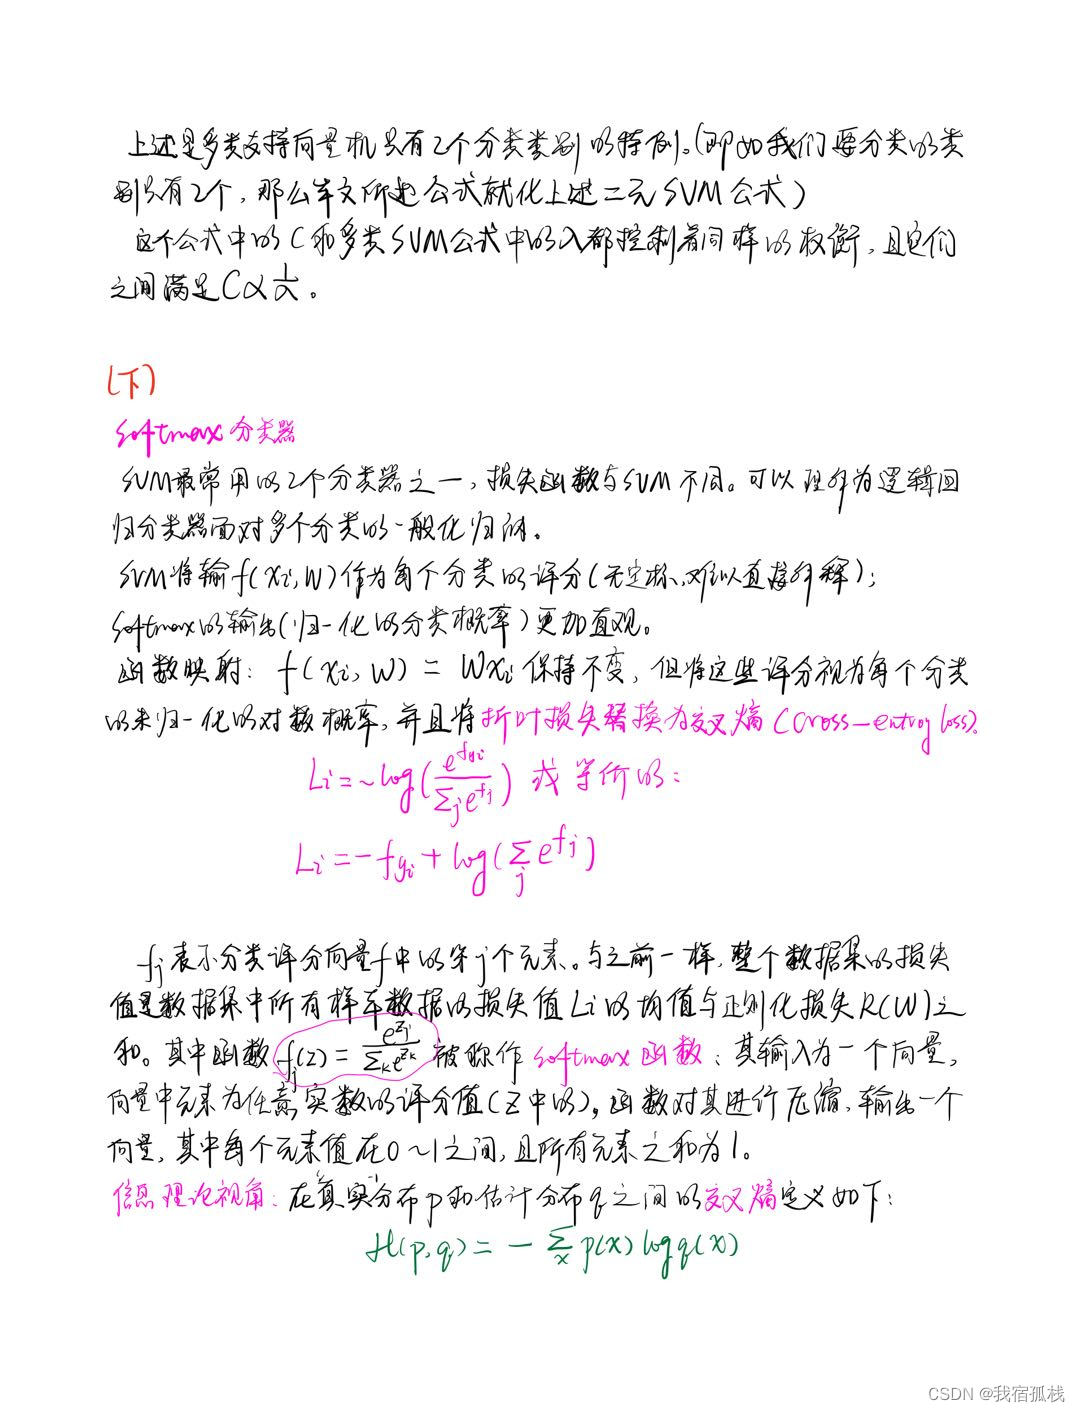 上述是多类支持向量机只有2个分类类别的特例。(即如我们要分类的类
别只有2个,那么本文所述公式就化上述二元SVM公式)
这个公式中的C和多类SVM公式中的λ都控制着同样的权衡,且它们
之间满足C∝1/λ。
(下)
softmax分类器
SVM最常用的2个分类器之一,损失函数与SVM不同。可以理解为逻辑回
归分类器面对多个分类的一般化归纳。
SVM将输f(xi,W)作为每个分类的评分(无定标,难以直接解释);
softmax的输出(归一化的分类概率)更加直观。
函数映射: f(xi,W) = Wxi 保持不变,但将这些评分视为每个分类
的未归一化的对数概率,并且将折叶损失替换为交叉熵(cross-entroy loss)。
Li=-log(e^{f_{yi}}/Σj e^{fj}) 或等价的:
Li=-f_{yi}+log(Σj e^{fj})
fj表示分类评分向量f中的第j个元素。与之前一样,整个数据集的损失
值是数据集中所有样本数据的损失值Li的均值与正则化损失R(W)之
和。其中函数fj(z)=e^{zj}/Σk e^{zk}被称作softmax函数:其输入为一个向量,
向量中元素为任意实数的评分值(z中的)。函数对其进行压缩,输出一个
向量,其中每个元素值在0~1之间,且所有元素之和为1。
信息理论视角:在"真实"分布p和估计分布q之间的交叉熵定义如下:
H(p,q)=-Σx p(x) log q(x)
CSDN @我宿孤栈